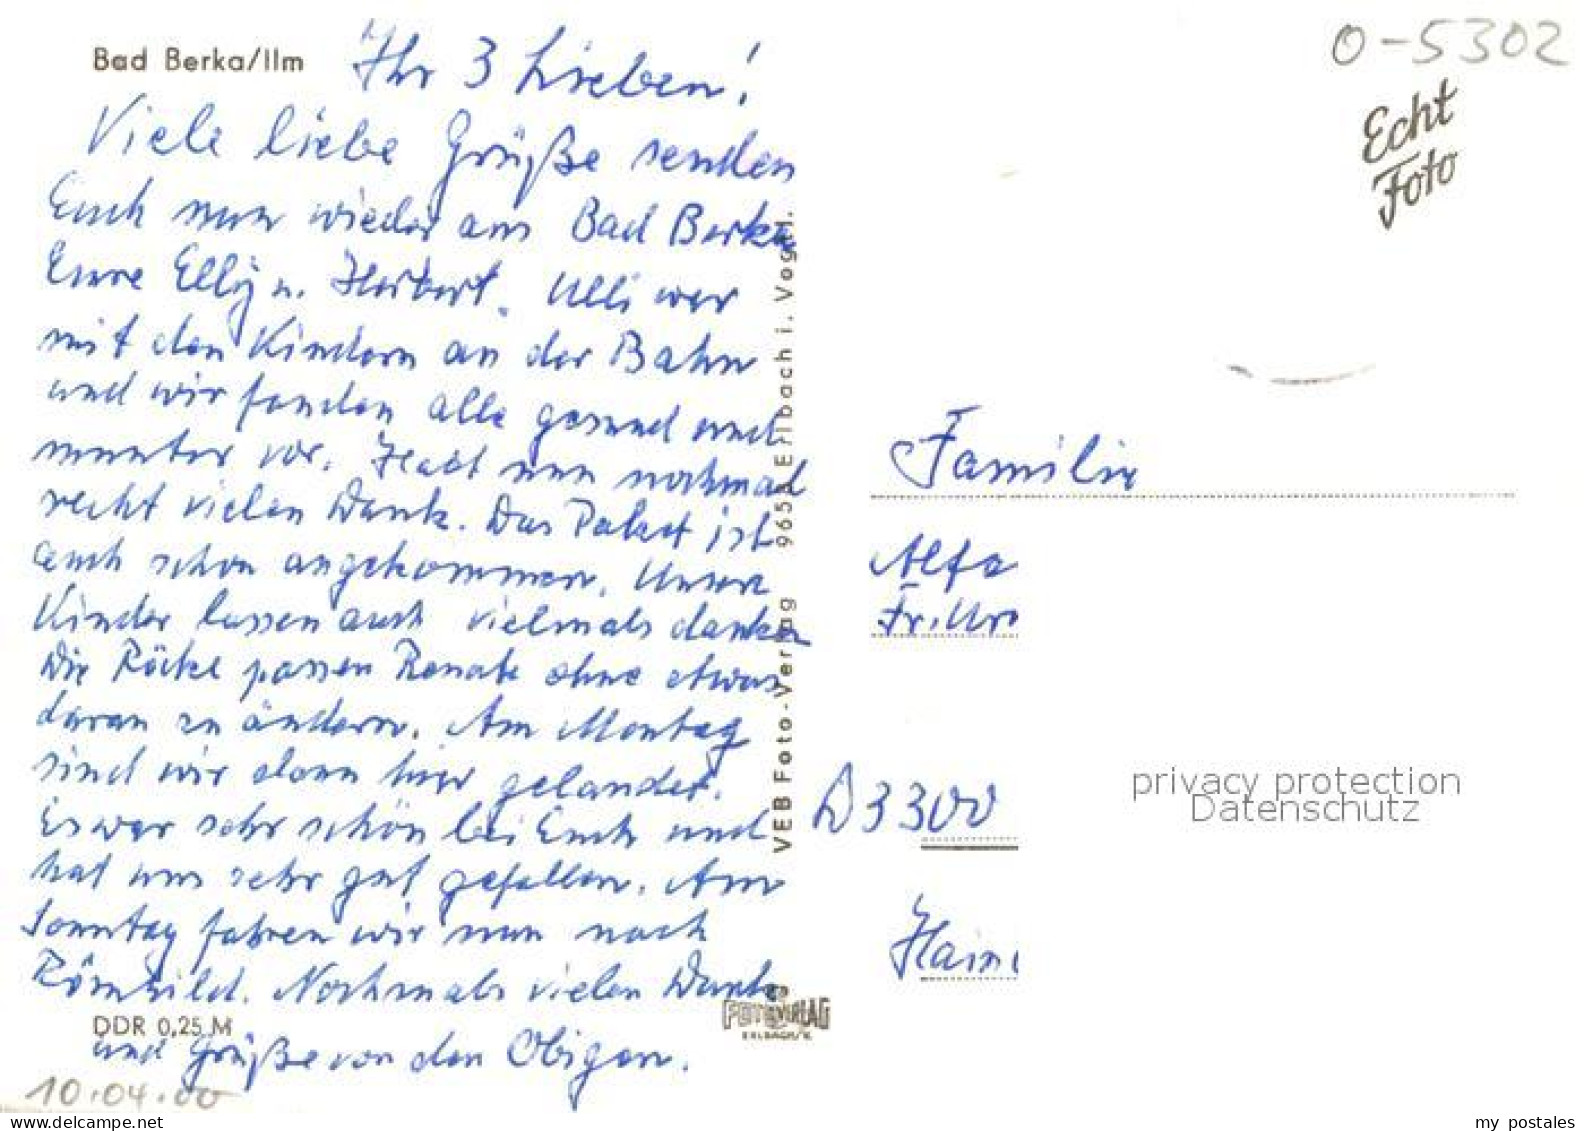 Bad Berka/Ilm
Ihr 3 Lieben!
Viele liebe Grüße senden
Euch nun wieder aus Bad Berka
Eure Elly u. Herbert. Ulli war
mit den Kindern an der Bahn
und wir fanden alle gesund und
munter vor. Habt nun nochmal
recht vielen Dank. Das Paket ist
auch schon angekommen. Unsere
Kinder lassen auch vielmals danken
Die Röcke passen Renate ohne etwas
daran zu ändern. Am Montag
sind wir dann hier gelandet.
Es war sehr schön bei Euch und
hat uns sehr gut gefallen. Am
Sonntag fahren wir nun nach
Römhild. Nochmals vielen Dank
und Grüße von den Obigen.
DDR 0,25 M
10.04.00
VEB Foto-Verlag Erlbach i. Vogtl.
FOTO VERLAG
ERLBACH/V.
O-5302
Echt
Foto
Familie
Alfa
Fr.
D 3300
privacy protection
Datenschutz
www.delcampe.net
my_postales